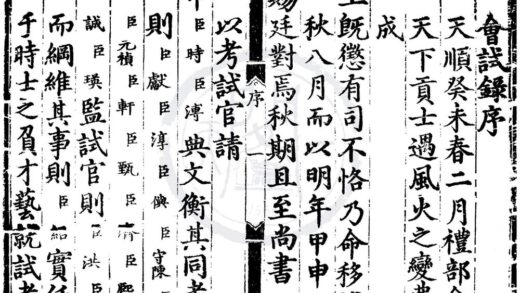 會試錄序
天順癸未春二月禮部
天下貢士遇風火之變
成
上旣懲有司不恪乃命移
秋八月而以明年甲申
賜廷對焉秋期且至尚書
序
一
以考試官請
臣時臣溥典文衡其同考
則臣獻臣淳臣儼臣守陳
臣元禎臣軒臣甄臣
誠臣瑛監試官則臣洪臣
而綱維其事則臣實任
于時士之負才藝就試者